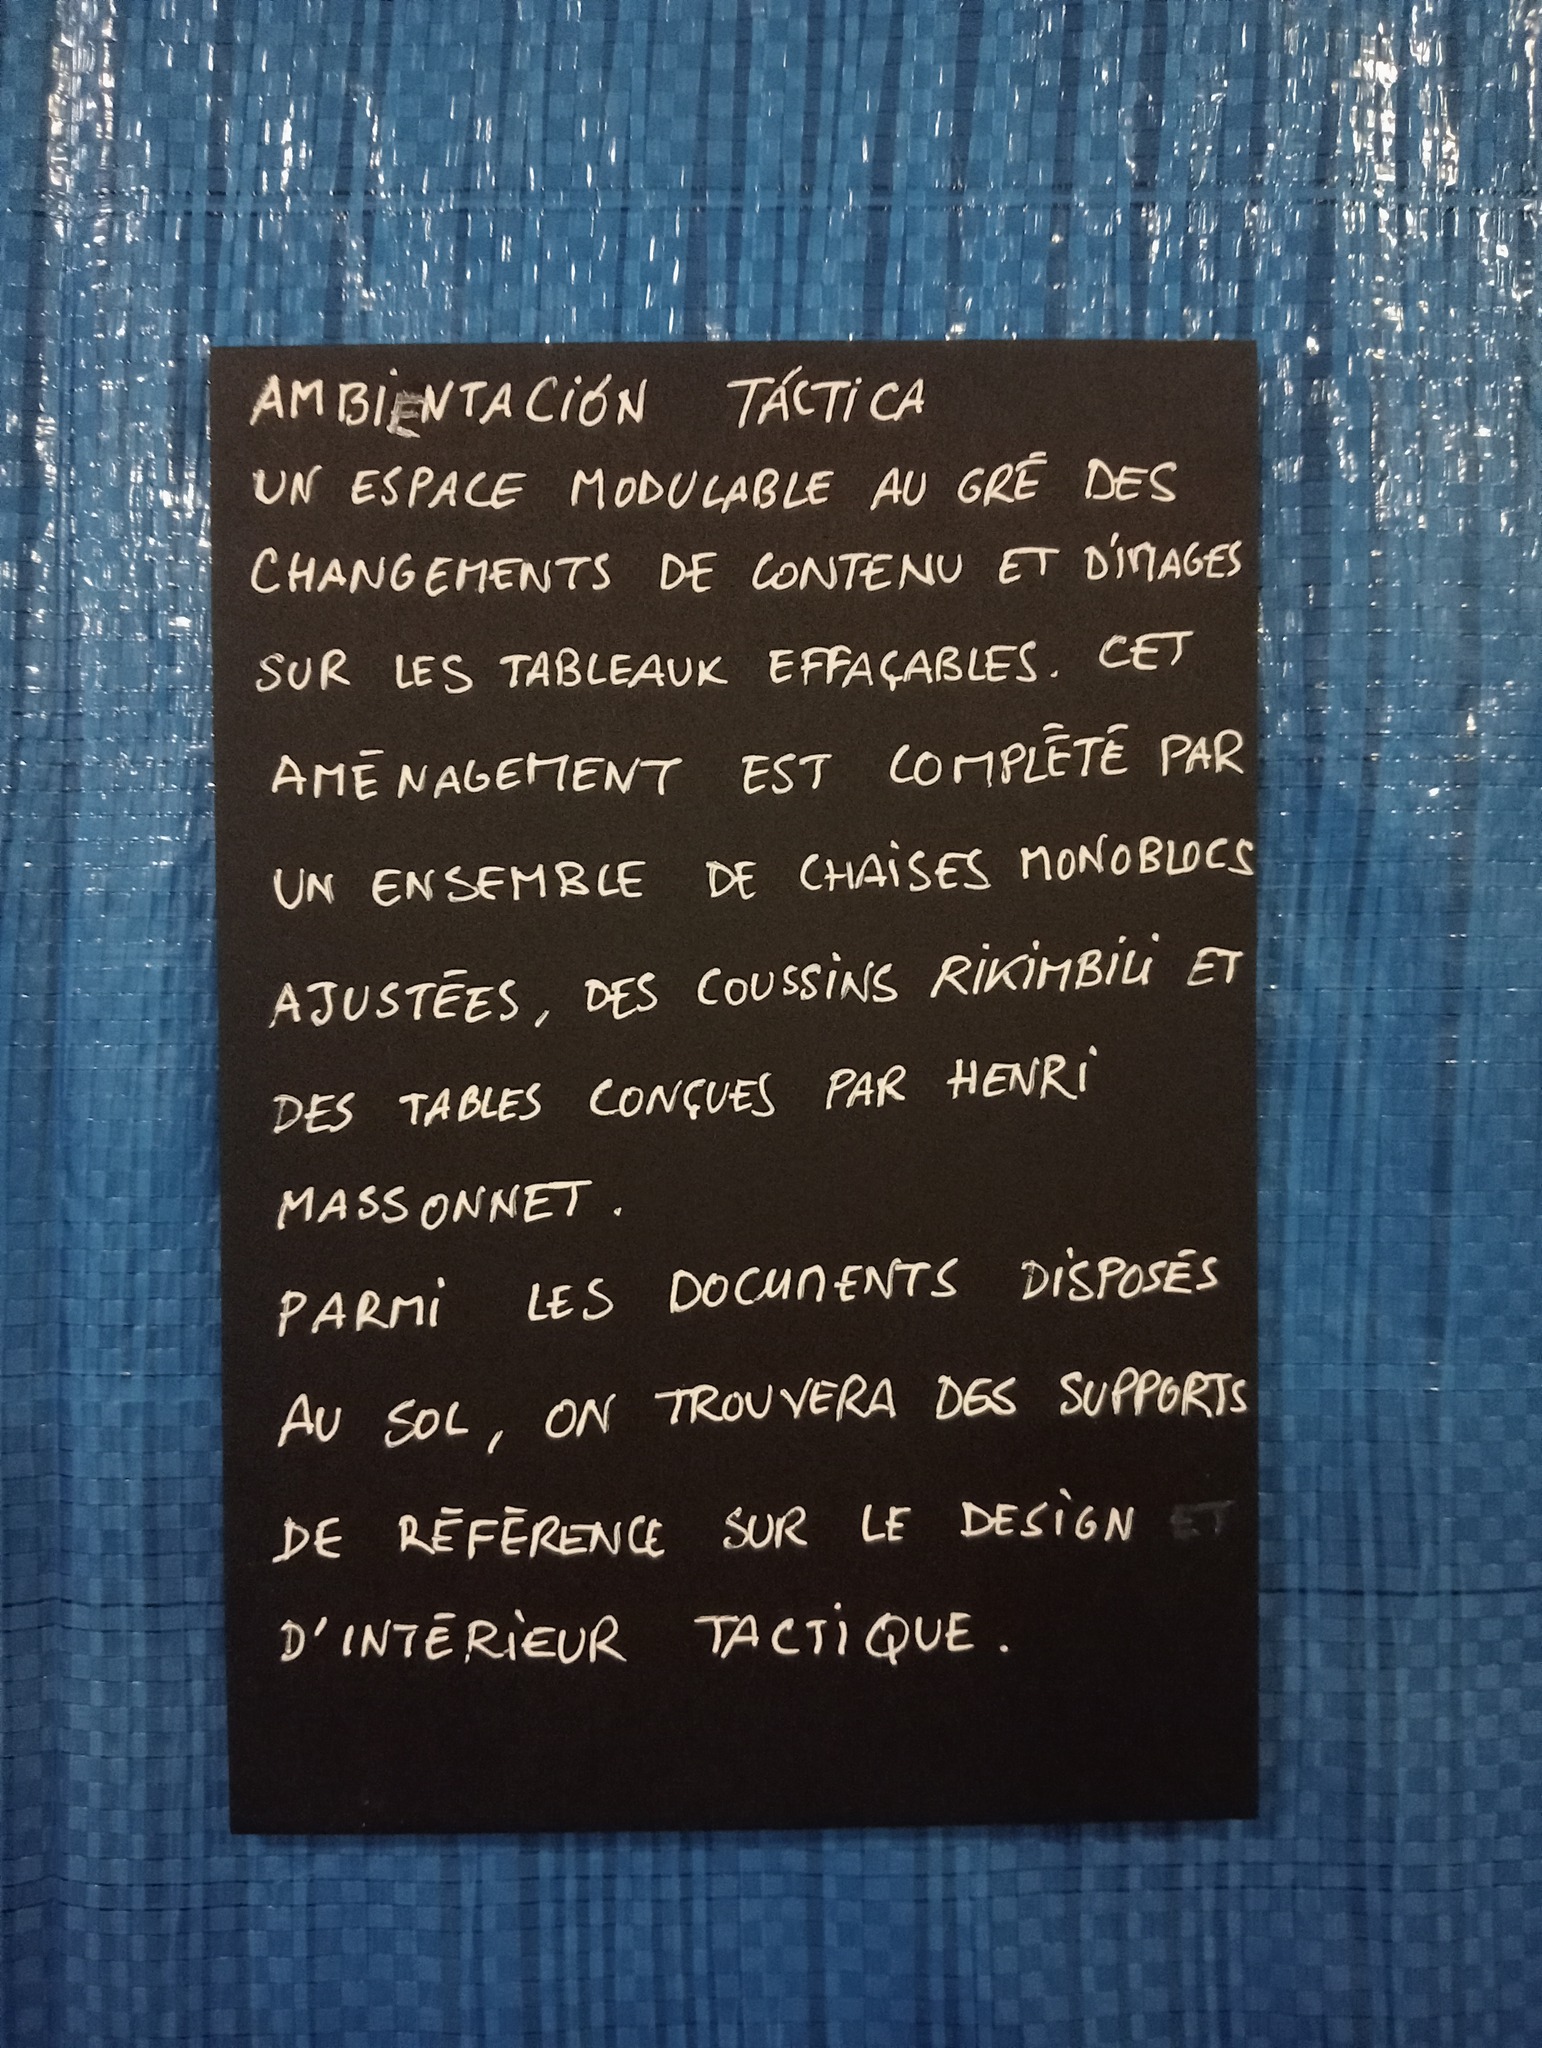 AMBIENTACIÓN TÁCTICA
UN ESPACE MODULABLE AU GRÉ DES
CHANGEMENTS DE CONTENU ET D'IMAGES
SUR LES TABLEAUX EFFAÇABLES. CET
AMÉNAGEMENT EST COMPLÉTÉ PAR
UN ENSEMBLE DE CHAISES MONOBLOCS
AJUSTÉES, DES COUSSINS RIKIMBILI ET
DES TABLES CONÇUES PAR HENRI
MASSONNET.
PARMI LES DOCUMENTS DISPOSÉS
AU SOL, ON TROUVERA DES SUPPORTS
DE RÉFÉRENCE SUR LE DESIGN ET
D'INTÉRIEUR TACTIQUE.